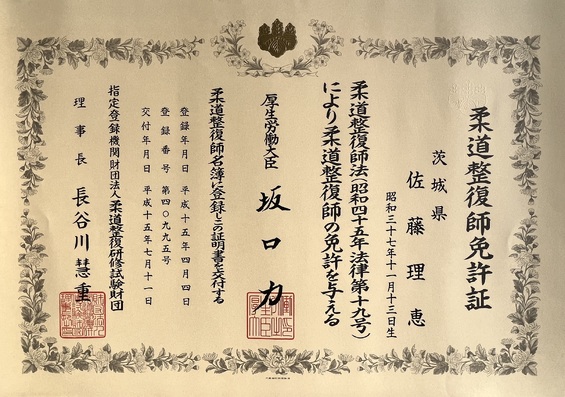 柔道整復師免許証
茨城県
佐藤理恵
昭和三十七年十一月十三日生
柔道整復師法(昭和四十五年法律第十九号)
により柔道整復師の免許を与える
厚生労働大臣
坂口力
柔道整復師名簿に登録しこの証明書を交付する
登録年月日 平成十五年四月四日
登録番号 第四〇九九五号
交付年月日 平成十五年七月十一日
指定登録機関財団法人柔道整復研修試験財団
理事長 長谷川慧重